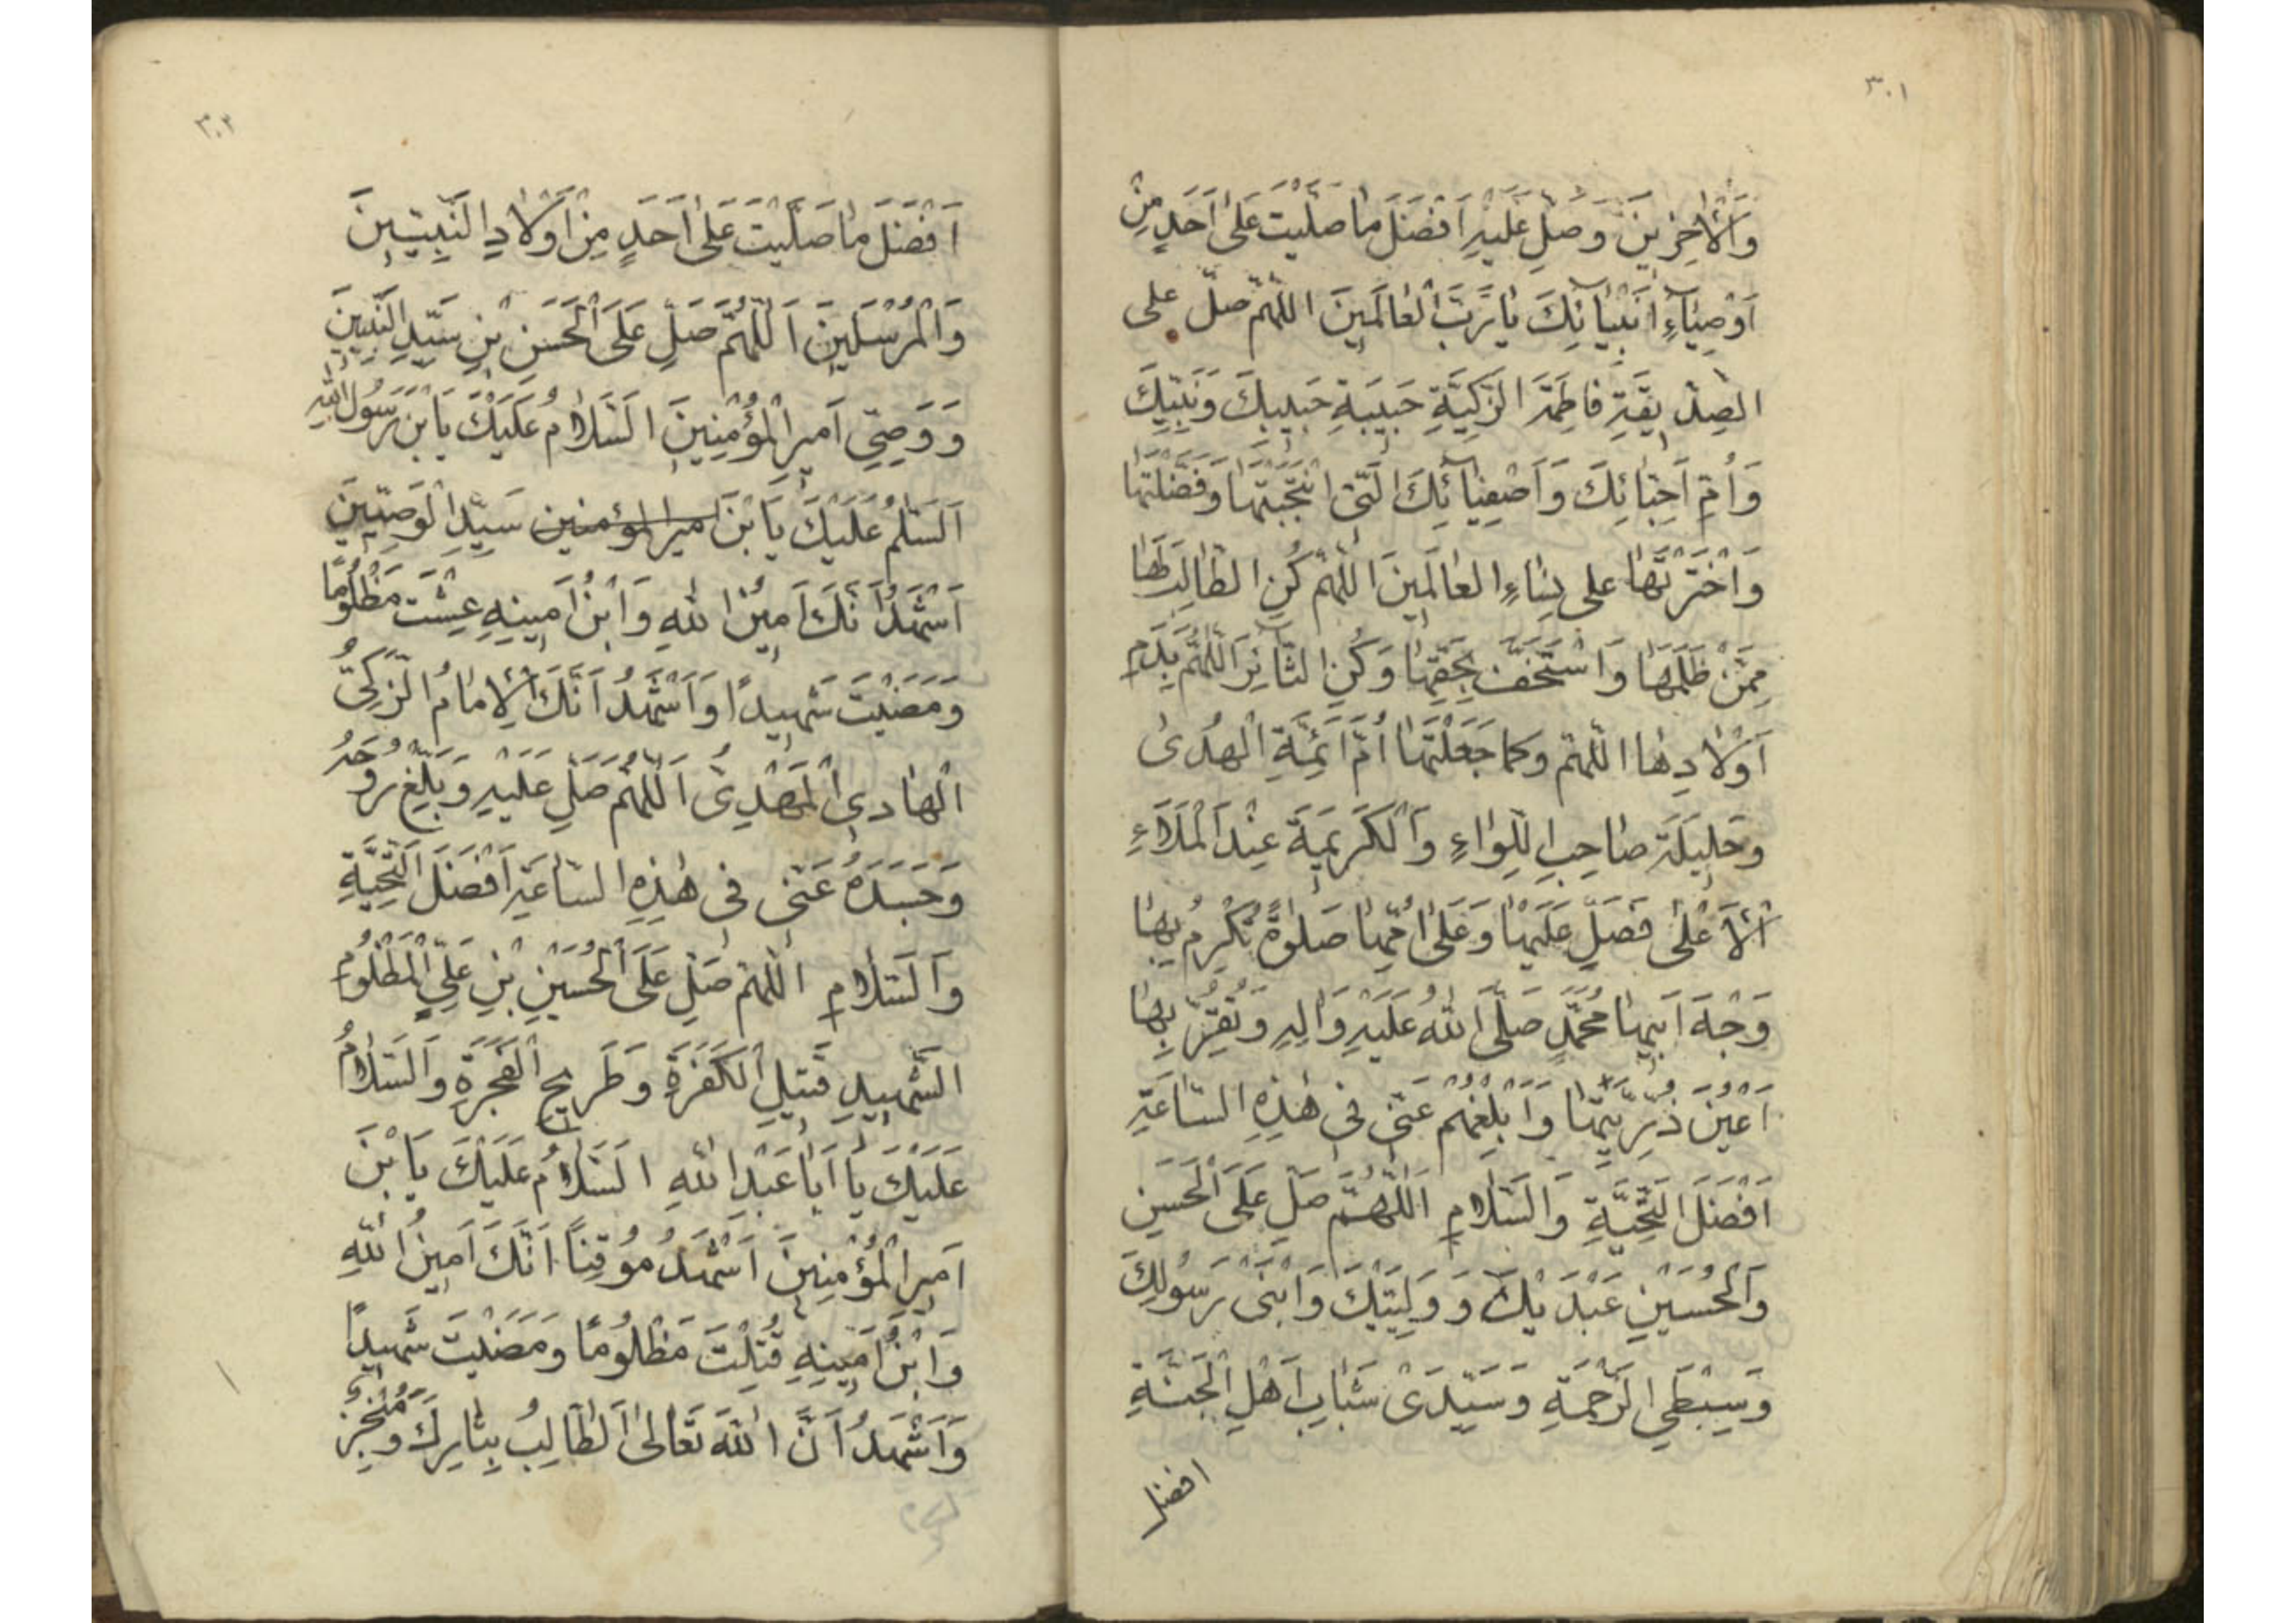 ٣٠١
وَالْاٰخِرِينَ وَصَلِّ عَلَيْهِ اَفْضَلَ مٰا صَلَّيْتَ عَلىٰ اَحَدٍ مِنْ
اَوْصِيٰاۤءِ اَنْبِيٰاۤئِكَ يٰا رَبَّ الْعٰالَمِينَ اللّٰهُمَّ صَلِّ على
الصِّدِّيقَةِ فٰاطِمَةَ الزَّكِيَّةِ حَبِيبَةِ حَبِيبِكَ وَنَبِيِّكَ
وَاُمِّ اَحِبّٰائِكَ وَاَصْفِيٰاۤئِكَ الَّتِى انْتَجَبْتَهٰا وَفَضَّلْتَهٰا
وَاخْتَرْتَهٰا على نِسٰاءِ العٰالَمِينَ اللّٰهُمَّ كُنِ الطّٰالِبَ لَهٰا
مِمَّنْ ظَلَمَهٰا وَاسْتَخَفَّ بِحَقِّهٰا وَكُنِ الثّٰائِرَ اللّٰهُمَّ بِدَمِ
اَوْلٰادِهٰا اللّٰهُمَّ وَكَمٰا جَعَلْتَهٰا اُمَّ اَئِمَّةِ الْهُدىٰ
وَحَلِيلَةَ صٰاحِبِ اللِّوٰاءِ وَالْكَرِيمَةَ عِنْدَ الْمَلَاءِ
الْاَعْلىٰ فَصَلِّ عَلَيْهٰا وَعَلىٰ اُمِّهٰا صَلٰوةً تُكْرِمُ بِهٰا
وَجْهَ اَبِيهٰا مُحَمَّدٍ صَلَّى اللّٰهُ عَلَيْهِ وَاٰلِهِ وَتُقِرُّ بِهٰا
اَعْيُنَ ذُرِّيَّتِهٰا وَاَبْلِغْهُمْ عَنّى فى هٰذِهِ السّٰاعَةِ
اَفْضَلَ التَّحِيَّةِ وَالسَّلٰامِ اَللّٰهُمَّ صَلِّ عَلَى الْحَسَنِ
وَالْحُسَيْنِ عَبْدَيْكَ وَ وَلِيَّيْكَ وَابْنَىْ رَسُولِكَ
وَسِبْطَىِ الرَّحْمَةِ وَسَيِّدَىْ شَبٰابِ اَهْلِ الْجَنَّةِ
افضل
٣٠٢
اَفْضَلَ مٰا صَلَّيْتَ عَلىٰ اَحَدٍ مِنْ اَوْلٰادِ النَّبِيّٖينَ
وَالْمُرْسَلِينَ اَللّٰهُمَّ صَلِّ عَلَى الْحَسَنِ بْنِ سَيِّدِ النَّبِيّٖينَ
وَ وَصِىِّ اَمِيرِ الْمُؤْمِنِينَ السَّلٰامُ عَلَيْكَ يَابْنَ رَسُولِ اللّٰهِ
اَلسَّلٰمُ عَلَيْكَ يَابْنَ اميرالمؤمنين سَيِّدِ الْوَصِيّٖينَ
اَشْهَدُ اَنَّكَ اَمِينُ اللّٰهِ وَابْنُ اَمِينِهِ عِشْتَ مَظْلُومًا
وَمَضَيْتَ شَهِيدًا وَاَشْهَدُ اَنَّكَ الْاِمٰامُ الزَّكِىُّ
الْهٰادِى الْمَهْدِىُّ اَللّٰهُمَّ صَلِّ عَلَيْهِ وَبَلِّغْ رُوحَهُ
وَجَسَدَهُ عَنّى فى هٰذِهِ السّٰاعَةِ اَفْضَلَ التَّحِيَّةِ
وَالسَّلٰامِ اللّٰهُمَّ صَلِّ عَلَى الْحُسَيْنِ بْنِ عَلِىٍّ الْمَظْلُومِ
الشَّهِيدِ قَتِيلِ الْكَفَرَةِ وَطَرِيحِ الْفَجَرَةِ وَالسَّلٰامُ
عَلَيْكَ يٰا اَبٰا عَبْدِ اللّٰهِ السَّلٰامُ عَلَيْكَ يَابْنَ
اَمِيرِ الْمُؤْمِنِينَ اَشْهَدُ مُوقِنًا اَنَّكَ اَمِينُ اللّٰهِ
وَابْنُ اَمِينِهِ قُتِلْتَ مَظْلُومًا وَمَضَيْتَ شَهِيدًا
وَاَشْهَدُ اَنَّ اللّٰهَ تَعٰالىٰ الطّٰالِبُ بِثٰارِكَ وَمُنْجِزُ